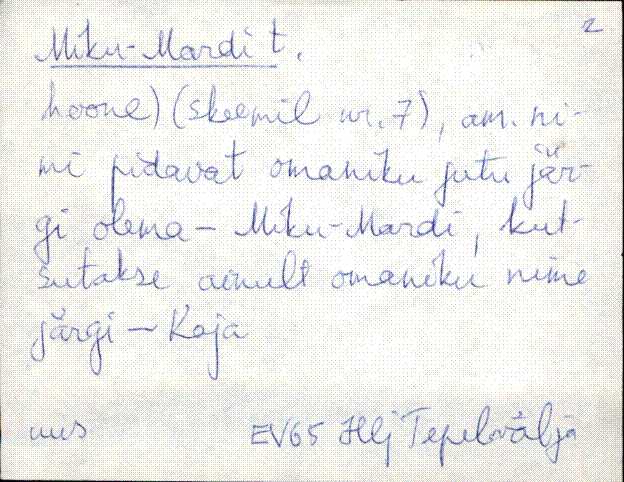 2
Miku-Mardi t.
hoone) (skeemil nr. 7), am. ni-
mi pidavat omaniku jutu jär-
gi olema - Miku-Mardi, kut-
sutakse ainult omaniku nime
järgi - Kaja
uus EV65 Hlj Tepelvälja